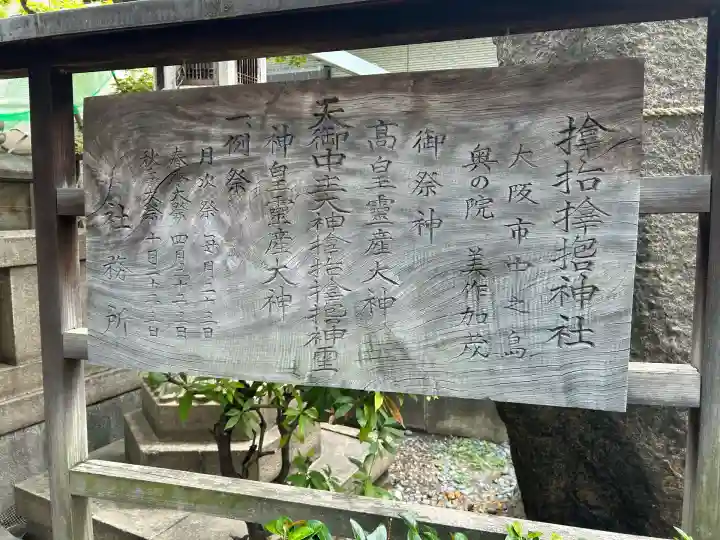 捨拾捨抱神社
大阪市中之島
奥の院 美作加茂
御祭神
高皇靈産大神
天御中主大神捨拾捨抱神霊
神皇靈産大神
一、例祭
月次祭 毎月二十三日
春季大祭 四月二十三日
秋季大祭 十月二十三日
社務所